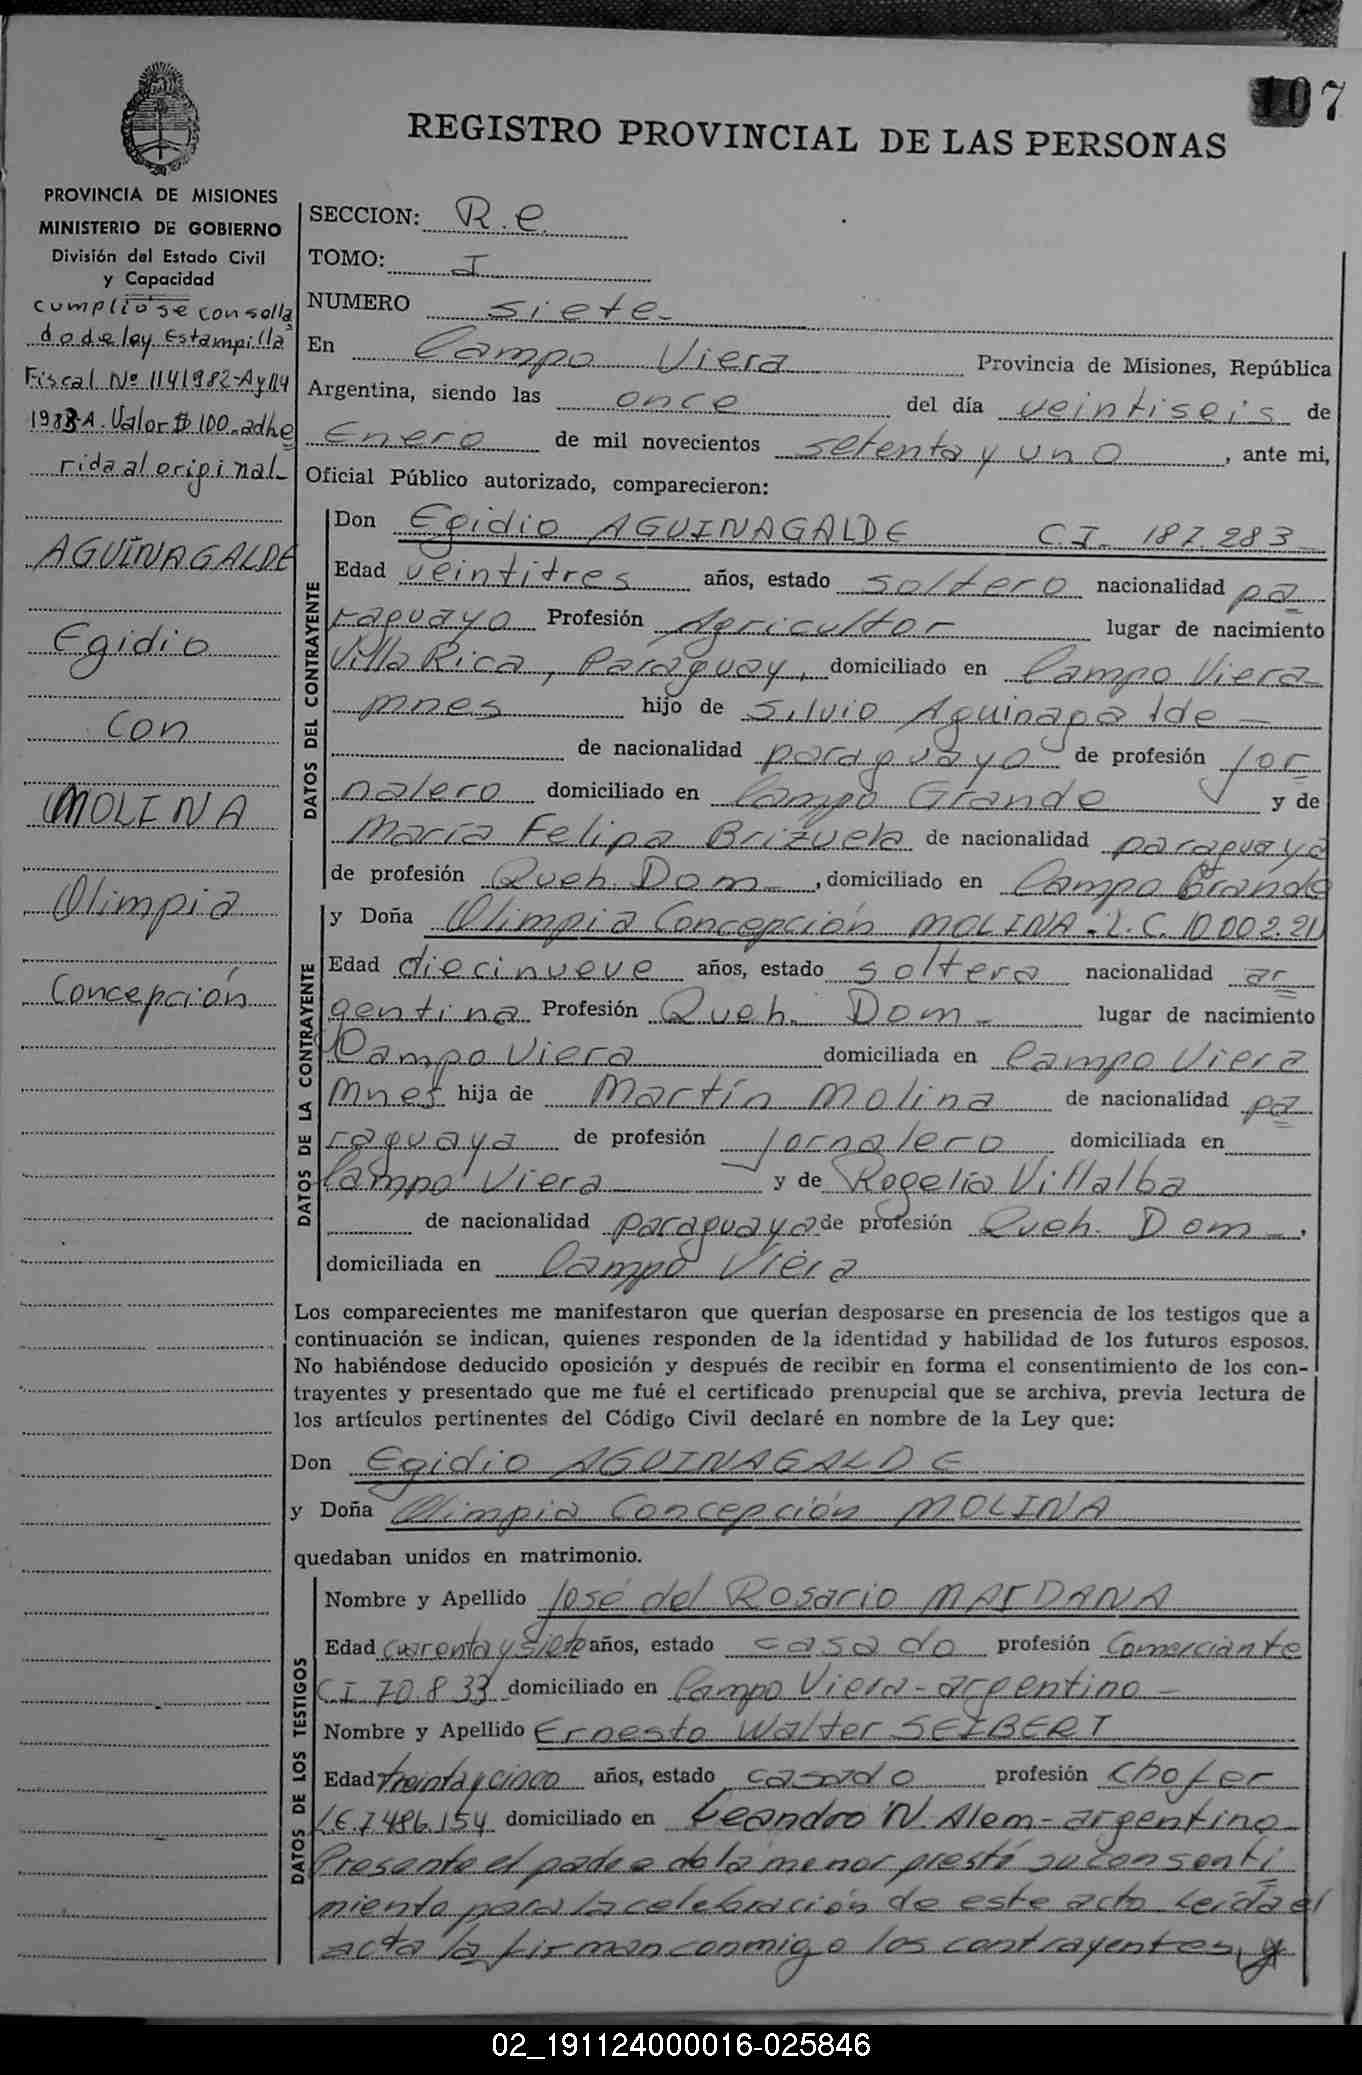 107
REGISTRO PROVINCIAL DE LAS PERSONAS
PROVINCIA DE MISIONES
MINISTERIO DE GOBIERNO
División del Estado Civil
y Capacidad
cumplió se con sella
do de ley Estampilla
Fiscal Nº 1141982-A y 114
1983-A. Valor $ 100.-adhe
rida al original
AGUINAGALDE
Egidio
con
MOLINA
Olimpia
Concepción
SECCION: R.e.
TOMO: I
NUMERO siete-
En Campo Viera Provincia de Misiones, República
Argentina, siendo las once del día veintiseis de
Enero de mil novecientos setenta y uno, ante mi,
Oficial Público autorizado, comparecieron:
DATOS DEL CONTRAYENTE
Don Egidio AGUINAGALDE C.I. 187.283-
Edad veintitres años, estado soltero nacionalidad pa
raguayo Profesión Agricultor lugar de nacimiento
Villa Rica, Paraguay, domiciliado en Campo Viera-
mnes hijo de Silvio Aguinagalde-
de nacionalidad paraguayo de profesión jor
nalero domiciliado en Campo Grande y de
María Felipa Brizuela de nacionalidad paraguaya
de profesión Queh. Dom-, domiciliado en Campo Grande
DATOS DE LA CONTRAYENTE
y Doña Olimpia Concepción MOLINA-L.C. 10.002.21
Edad diecinueve años, estado soltera nacionalidad ar
gentina Profesión Queh. Dom- lugar de nacimiento
Campo Viera domiciliada en Campo Viera
Mnes hija de Martín Molina de nacionalidad pa
raguaya de profesión jornalero domiciliada en
Campo Viera y de Rogelia Villalba
de nacionalidad paraguaya de profesión Queh. Dom-,
domiciliada en Campo Viera
Los comparecientes me manifestaron que querían desposarse en presencia de los testigos que a
continuación se indican, quienes responden de la identidad y habilidad de los futuros esposos.
No habiéndose deducido oposición y después de recibir en forma el consentimiento de los con-
trayentes y presentado que me fué el certificado prenupcial que se archiva, previa lectura de
los artículos pertinentes del Código Civil declaré en nombre de la Ley que:
Don Egidio AGUINAGALDE
y Doña Olimpia Concepción MOLINA
quedaban unidos en matrimonio.
DATOS DE LOS TESTIGOS
Nombre y Apellido José del Rosario MAIDANA
Edad cuarenta y siete años, estado casado profesión Comerciante
C.I. 70.833 domiciliado en Campo Viera-argentino-
Nombre y Apellido Ernesto Walter SEIBERT
Edad treinta y cinco años, estado casado profesión chofer
L.E. 7.486.154 domiciliado en Leandro N. Alem-argentino-
Presente el padre de la menor prestó su consenti
miento para la celebración de este acto. Leída el
acta la firman conmigo los contrayentes, y
02_191124000016-025846